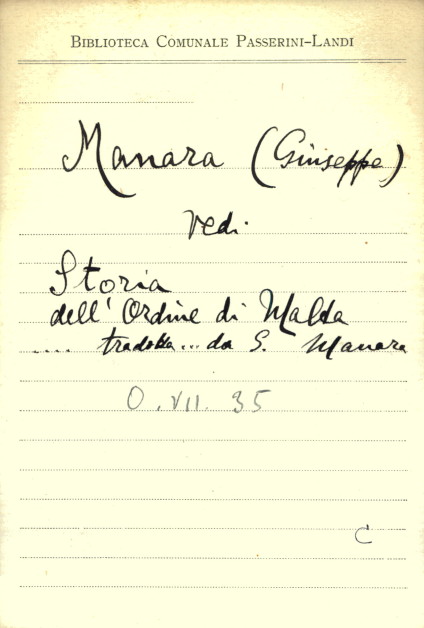 BIBLIOTECA COMUNALE PASSERINI-LANDI
Manara (Giuseppe)
Vedi
Storia
dell'Ordine di Malta
.... tradotta... da G. Manara
O. VII. 35
C